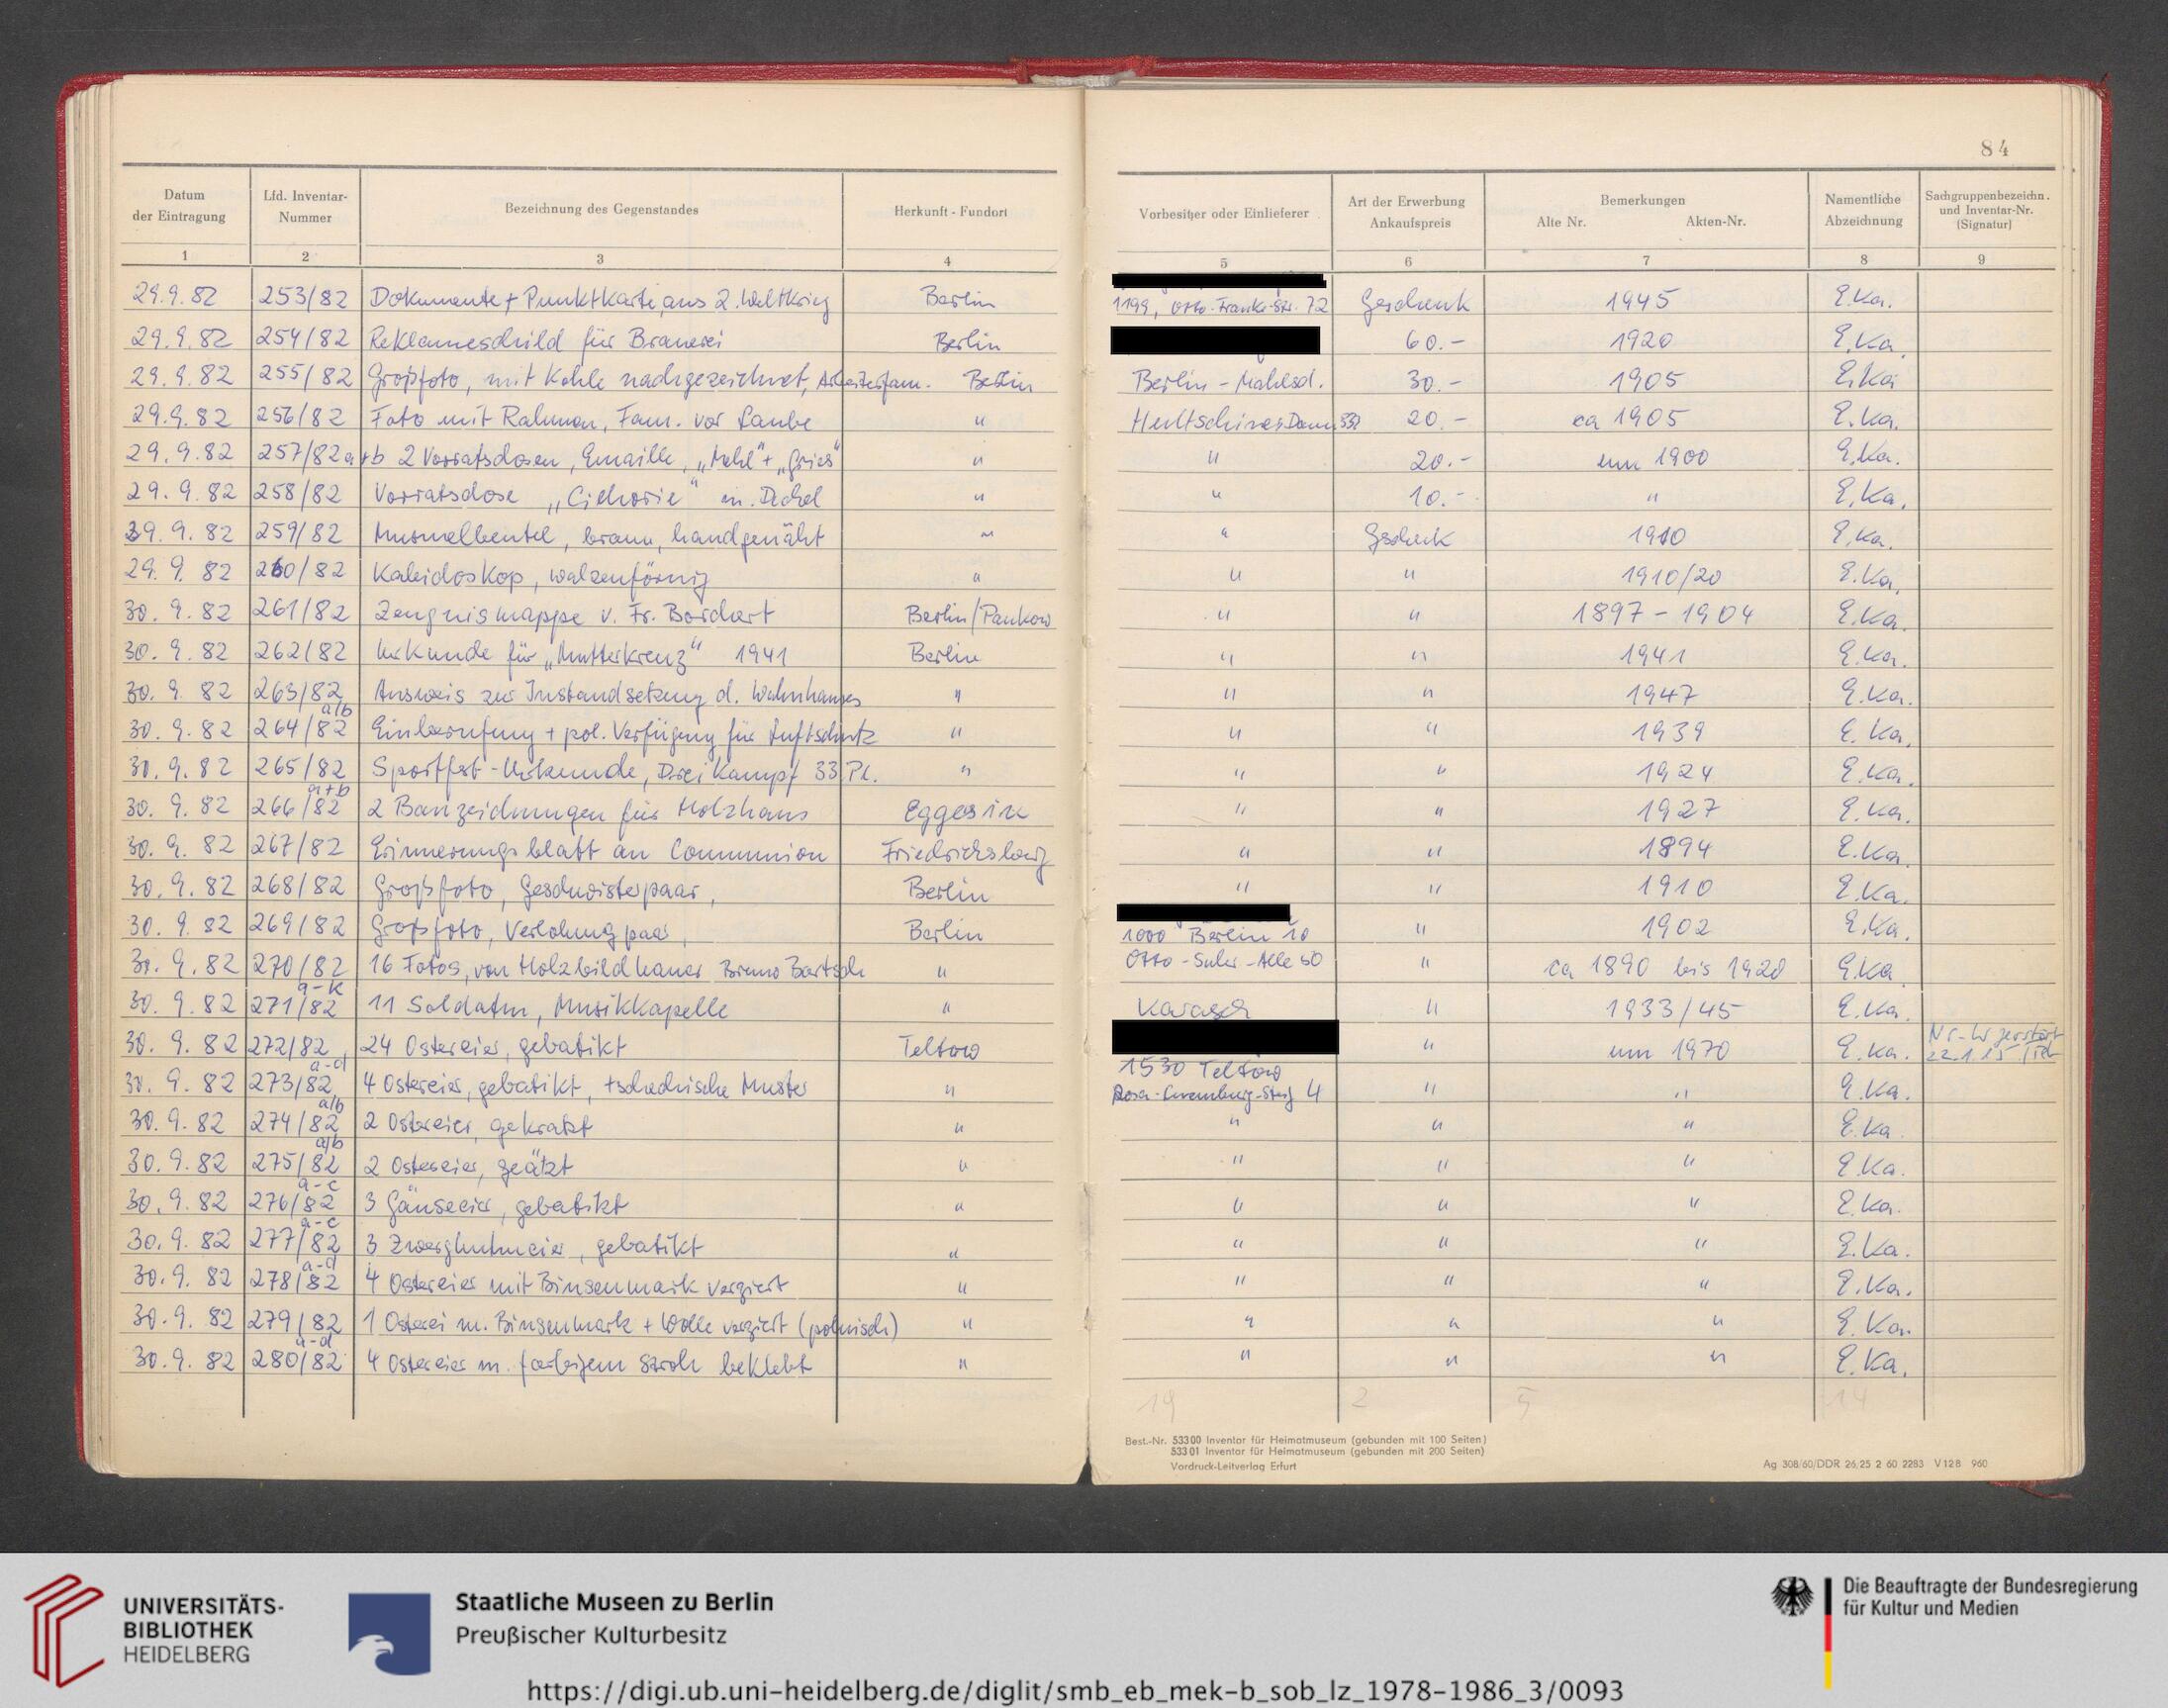 84
Datum der Eintragung | Lfd. Inventar-Nummer | Bezeichnung des Gegenstandes | Herkunft - Fundort | Vorbesitzer oder Einlieferer | Art der Erwerbung Ankaufspreis | Bemerkungen Alte Nr. Akten-Nr. | Namentliche Abzeichnung | Sachgruppenbezeichn. und Inventar-Nr. (Signatur)
1 | 2 | 3 | 4 | 5 | 6 | 7 | 8 | 9
29.9.82 | 253/82 | Dokumente + Punktkarte, aus 2. Weltkrieg | Berlin | 1199, Otto-Franke-Str. 72 | Geschenk | 1945 | E.Ka.
29.9.82 | 254/82 | Reklameschild für Brauerei | Berlin | 60.- | 1920 | E.Ka.
29.9.82 | 255/82 | Großfoto, mit Kohle nachgezeichnet, Arbeiterfam. | Berlin | Berlin - Mahlsd. | 30.- | 1905 | E.Ka
29.9.82 | 256/82 | Foto mit Rahmen, Fam. vor Laube | " | Hultschiner Damm 333 | 20.- | ca 1905 | E.Ka.
29.9.82 | 257/82 a+b | 2 Vorratsdosen, Emaille, „Mehl" + „Gries" | " | " | 20.- | um 1900 | E.Ka.
29.9.82 | 258/82 | Vorratsdose „Cichorie" m. Deckel | " | " | 10.- | " | E.Ka.
29.9.82 | 259/82 | Murmelbeutel, braun, handgenäht | " | " | Geschenk | 1910 | E.Ka.
29.9.82 | 260/82 | Kaleidoskop, walzenförmig | " | " | " | 1910/20 | E.Ka.
30.9.82 | 261/82 | Zeugnismappe v. Fr. Borchert | Berlin/Pankow | " | " | 1897 - 1904 | E.Ka.
30.9.82 | 262/82 | Urkunde für „Mutterkreuz" 1941 | Berlin | " | " | 1941 | E.Ka.
30.9.82 | 263/82 | Ausweis zur Instandsetzung d. Wohnhauses | " | " | " | 1947 | E.Ka.
30.9.82 | 264/82 a/b | Einberufung + pol. Verfügung für Luftschutz | " | " | " | 1939 | E.Ka.
30.9.82 | 265/82 | Sportfest-Urkunde, Dreikampf 33 Pl. | " | " | " | 1924 | E.Ka.
30.9.82 | 266/82 a+b | 2 Bauzeichnungen für Holzhaus | Eggesin | " | " | 1927 | E.Ka.
30.9.82 | 267/82 | Erinnerungsblatt an Communion | " | " | 1894 | E.Ka.
30.9.82 | 268/82 | Großfoto, Geschwisterpaar, | Berlin | " | " | 1910 | E.Ka.
30.9.82 | 269/82 | Großfoto, Verlobungspaar, | Berlin | 1000 Berlin 10 | " | 1902 | E.Ka.
30.9.82 | 270/82 | 16 Fotos, von Holzbildhauer Bruno Bartsch | " | Otto-Suhr-Alle 50 | " | ca 1890 bis 1920 | E.Ka
30.9.82 | 271/82 a-k | 11 Soldaten, Musikkapelle | " | Karasch | " | 1933/45 | E.Ka.
30.9.82 | 272/82 | 24 Ostereier, gebatikt | Teltow | " | um 1970 | E.Ka. | 22.1.15
30.9.82 | 273/82 a-d | 4 Ostereier, gebatikt, tschechische Muster | " | 1530 Teltow Rosa-Luxemburg-Steig 4 | " | " | E.Ka.
30.9.82 | 274/82 a/b | 2 Ostereier, gekratzt | " | " | " | " | E.Ka
30.9.82 | 275/82 a/b | 2 Ostereier, geätzt | " | " | " | " | E.Ka.
30.9.82 | 276/82 a-c | 3 Gänseeier, gebatikt | " | " | " | " | E.Ka.
30.9.82 | 277/82 a-c | 3 Zwerghuhneier, gebatikt | " | " | " | " | E.Ka.
30.9.82 | 278/82 a-d | 4 Ostereier mit Binsenmark verziert | " | " | " | " | E.Ka.
30.9.82 | 279/82 | 1 Osterei m. Binsenmark + Wolle verziert (polnisch) | " | " | " | " | E.Ka.
30.9.82 | 280/82 a-d | 4 Ostereier m. farbigem Stroh beklebt | " | " | " | " | E.Ka.
19 2 5 14
Best.-Nr. 53300 Inventar für Heimatmuseum (gebunden mit 100 Seiten)
53301 Inventar für Heimatmuseum (gebunden mit 200 Seiten)
Vordruck-Leitverlag Erfurt
Ag 308/60/DDR 26,25 2 60 2283 V128 960
UNIVERSITÄTS-
BIBLIOTHEK
HEIDELBERG
Staatliche Museen zu Berlin
Preußischer Kulturbesitz
Die Beauftragte der Bundesregierung
für Kultur und Medien
https://digi.ub.uni-heidelberg.de/diglit/smb_eb_mek-b_sob_lz_1978-1986_3/0093